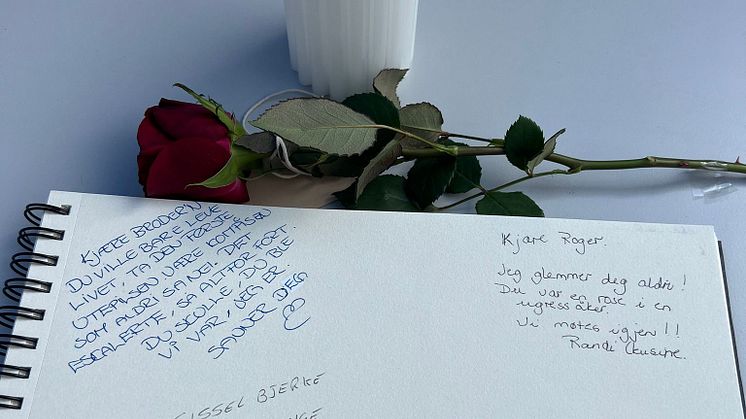 KJÆRE BRODER'N
DU VILLE BARE LEVE
LIVET, TA DEN FØRSTE
UTEPILSEN VÆRE KOMPISEN
SOM ALDRI SA NEI. DET
ESKALERTE, SÅ ALTFOR FORT.
DU SKULLE DU BLE
VI VAR, JEG ER
SAVNER DEG
SISSEL BJERKE
Kjære Roger.
Jeg glemmer deg aldri!
Du var en rose i en
ugressåker.
Vi møtes igjen!!
Randi